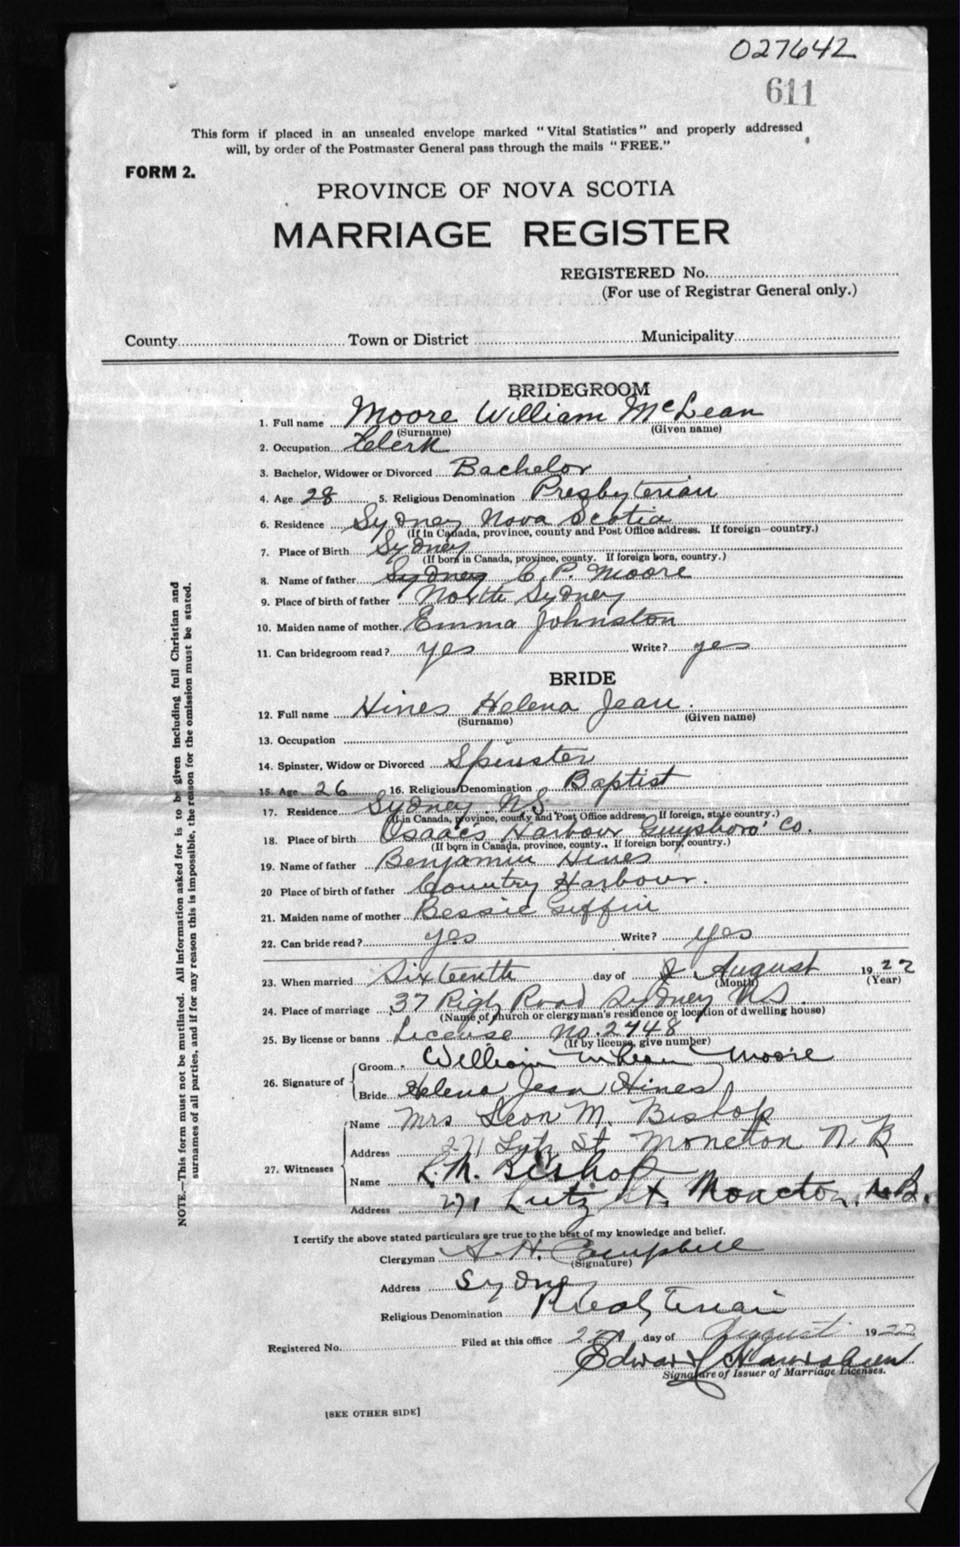 027642
611
This form if placed in an unsealed envelope marked "Vital Statistics" and properly addressed
will, by order of the Postmaster General pass through the mails "FREE."
FORM 2.
PROVINCE OF NOVA SCOTIA
MARRIAGE REGISTER
REGISTERED No.
(For use of Registrar General only.)
County Town or District Municipality
BRIDEGROOM
1. Full name Moore William McLean
(Surname) (Given name)
2. Occupation Clerk
3. Bachelor, Widower or Divorced Bachelor
4. Age 28 5. Religious Denomination Presbyterian
6. Residence Sydney Nova Scotia
(If in Canada, province, county and Post Office address. If foreign—country.)
7. Place of Birth Sydney
(If born in Canada, province, county. If foreign born, country.)
8. Name of father Sydney C. P. Moore
9. Place of birth of father North Sydney
10. Maiden name of mother Emma Johnston
11. Can bridegroom read? yes Write? yes
BRIDE
12. Full name Hines Helena Jean.
(Surname) (Given name)
13. Occupation
14. Spinster, Widow or Divorced Spinster
15. Age 26 16. Religious Denomination Baptist
17. Residence Sydney N.S.
(If in Canada, province, county and Post Office address, If foreign, state country.)
18. Place of birth Isaacs Harbour Guysboro' Co.
(If born in Canada, province, county., If foreign born, country.)
19. Name of father Benjamin Hines
20 Place of birth of father Country Harbour.
21. Maiden name of mother Bessie Giffin
22. Can bride read? yes Write? yes
23. When married Sixteenth day of August 1922
(Month) (Year)
24. Place of marriage 37 Road Sydney N.S.
(Name of church or clergyman's residence or location of dwelling house)
25. By license or banns License No. 2748
(If by license, give number)
26. Signature of
Groom William McLean Moore
Bride Helena Jean Hines
27. Witnesses
Name Mrs Leon M. Bishop
Address 271 Lutz St. Moncton N. B
Name L. M. Bishop
Address 271 Lutz St. Moncton, N.B.
I certify the above stated particulars are true to the best of my knowledge and belief.
Clergyman A. H. Campbell
(Signature)
Address Sydney
Religious Denomination Presbyterian
Registered No. Filed at this office day of August 1922
Edward
Signature of Issuer of Marriage Licenses.
[SEE OTHER SIDE]
NOTE.—This form must not be mutilated. All information asked for is to be given including full Christian and
surnames of all parties, and if for any reason this is impossible, the reason for the omission must be stated.